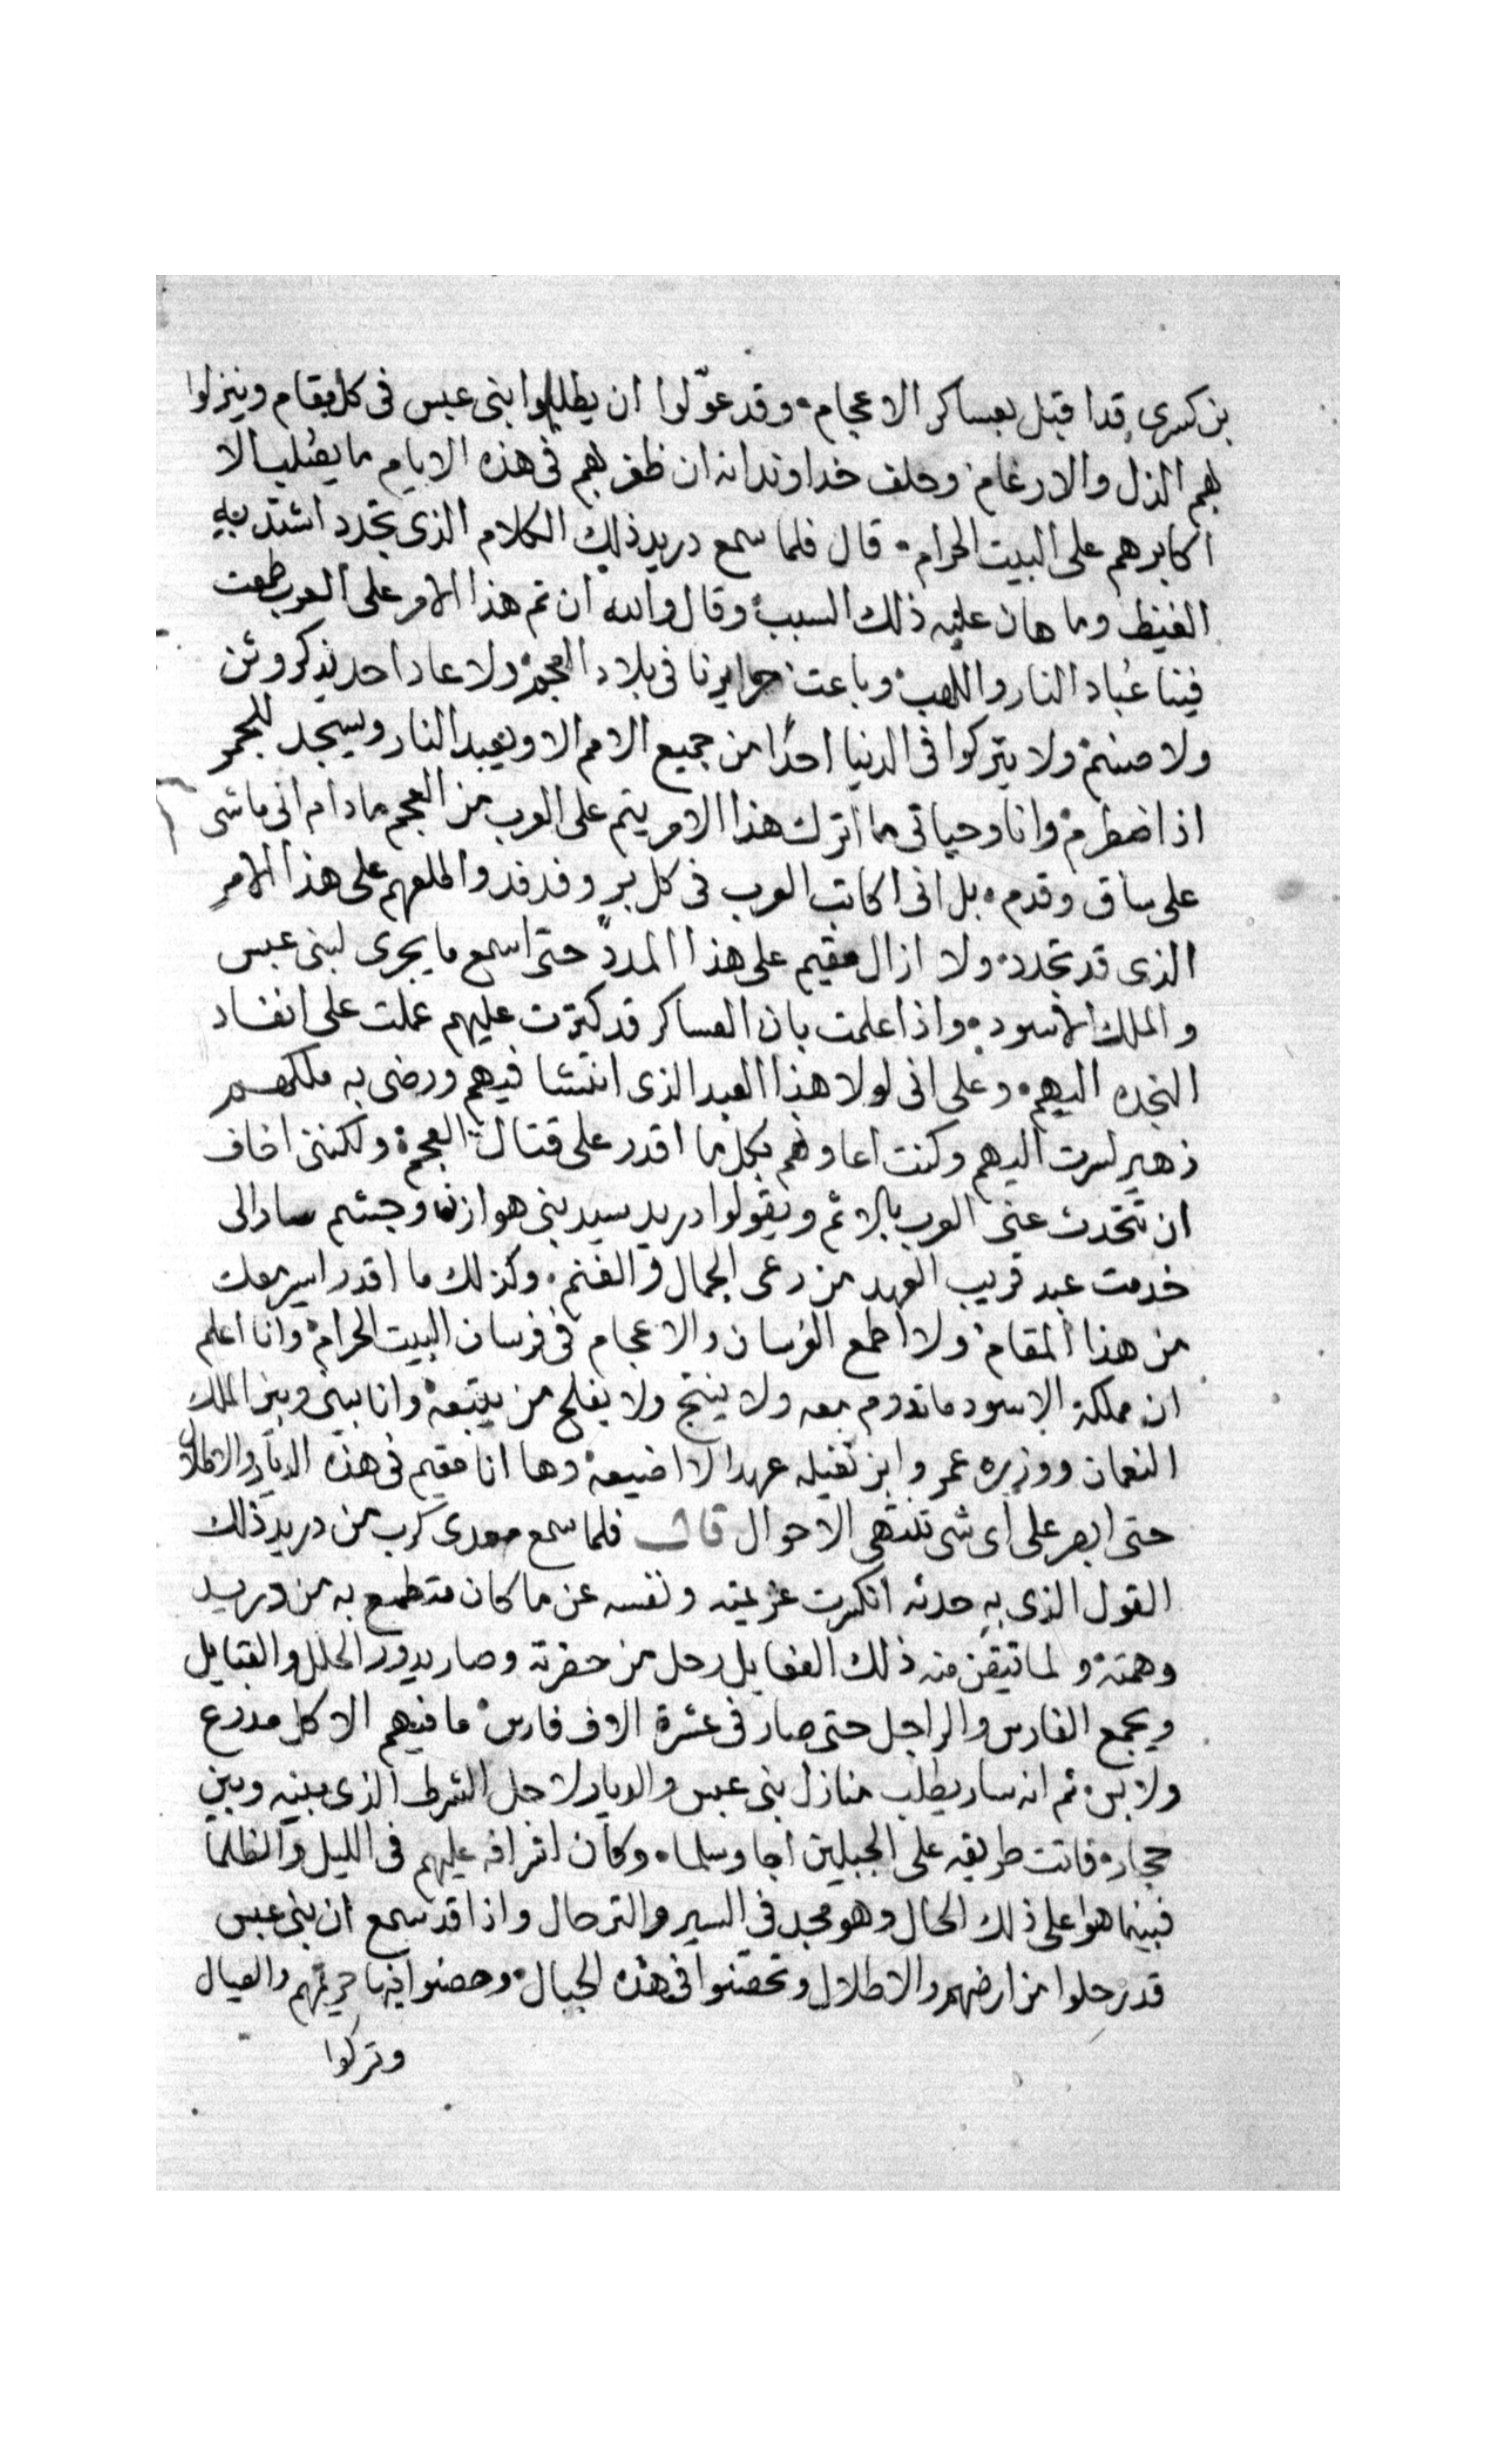 بن كسرى قد اقبل بعساكر الاعجام وقد عوّلوا ان يطلبوا بنى عبس فى كل مقام وينزلوا
بهم الذل والارغام وحلف خداوند انه ان ظفر بهم فى هذه الايام ما يصلب الا
اكابرهم على البيت الحرام قال فلما سمع دريد ذلك الكلام الذى تجدد اشتد به
الغيظ وما هان عليه ذلك السبب وقال والله ان تم هذا الامر على العرب طمعت
فينا عُباد النار واللهب وباعت حرايرنا فى بلاد العجم ولا عاد احد يذكر وثن
ولا صنم ولا يتركوا فى الدنيا احدًا من جميع الامم الا ويعبد النار ويسجد للجمر
اذا اضطرم وانا وحياتى ما اترك هذا الامر يتم على العرب من العجم ما دام انى ماشى
على ساق وقدم بل انى اكاتب العرب فى كل بر وفدفد واطلعهم على هذا الامر
الذى قد تجدد ولا ازال مقيم على هذا المدد حتى اسمع ما يجرى لبنى عبس
والملك الاسود واذا علمت بان العساكر قد كترت عليهم عملت على انفاد
النجده اليهم وعلى انى لولا هذا العبد الذى انتشا فيهم ورضى به ملكهم
زهير لسرت اليهم وكنت اعاونهم بكل ما اقدر على قتال العجم ولكننى اخاف
ان تتحدث عنى العرب بالاثم ويقولوا دريد سيد بنى هوازن وجشم سار الى
خدمت عبد قريب العهد من رعى الجمال والغنم وكذلك ما اقدر اسير معك
من هذا المقام ولا اطمع الفرسان والاعجام فى فرسان البيت الحرام وانا اعلم
ان مملكة الاسود ما تدوم معه ولا ينتج ولا يفلح من يتبعه وانا بينى وبين الملك
النعمان ووزيره عمر وابن نفيله عهد الا اضيعه وها انا مقيم فى هذه الديار والاطلال
حتى ابصر على اى شى تنتهى الاحوال قال فلما سمع معدى كرب من دريد ذلك
القول الذى به حدثه انكسرت عزيمته ونفسه عن ما كان متطمع به من دريد
وهمته ولما تيقن منه ذلك الفعايل رحل من حضرته وصار يدور الحلل والقبايل
ويجمع الفارس والراجل حتى صار فى عشرة الاف فارس ما فيهم الا كل مدرع
ولابس ثم انه سار يطلب منازل بنى عبس والديار لاجل الشرط الذى بينه وبين
حجار فاتت طريقه على الجبلين اجا وسلما وكان اشرافه عليهم فى الليل والظلما
فبينما هوا على ذلك الحال وهو مجد فى السير والترحال واذا قد سمع ان بنى عبس
قد رحلوا من ارضهم والاطلال وتحصنوا فى هذه الجبال وحصنوا فيها حريمهم والعيال
وتركوا